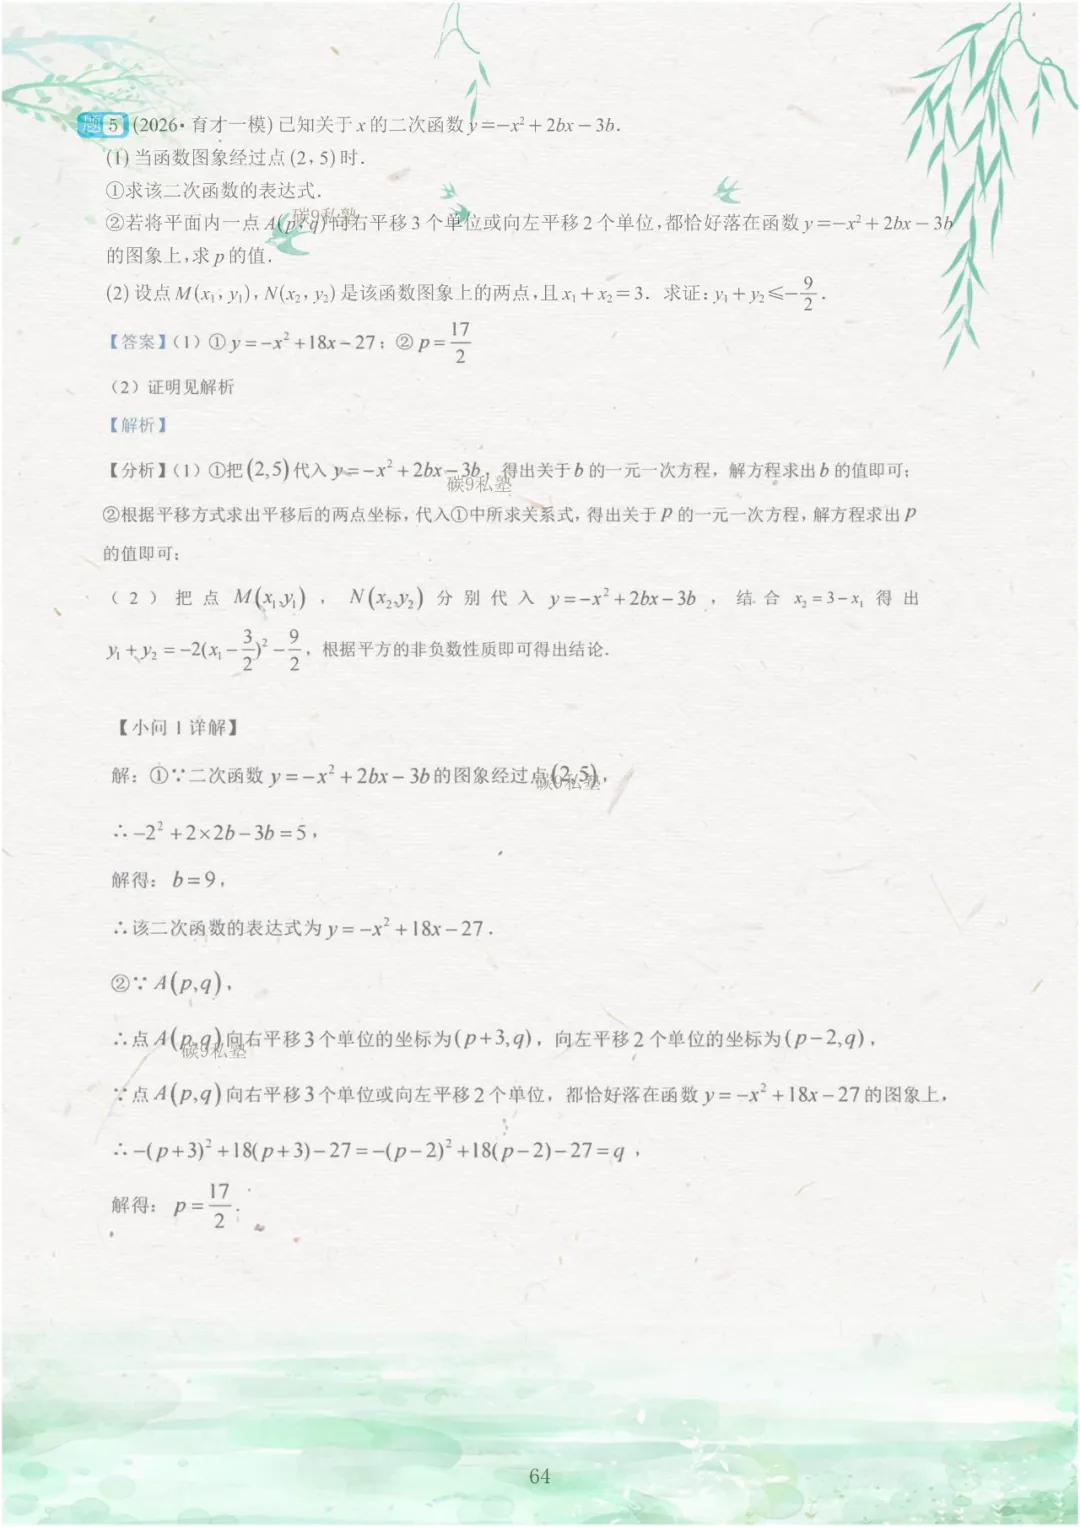 题5 (2026·育才一模)已知关于x的二次函数y=-x²+2bx-3b.
(1)当函数图象经过点(2,5)时.
①求该二次函数的表达式.
②若将平面内一点A(p,q)向右平移3个单位或向左平移2个单位,都恰好落在函数y=-x²+2bx-3b
碳9私塾
的图象上,求p的值.
(2)设点M(x₁,y₁),N(x₂,y₂)是该函数图象上的两点,且x₁+x₂=3. 求证:y₁+y₂≤-9/2.
【答案】(1)①y=-x²+18x-27;②p=17/2
(2)证明见解析
【解析】
【分析】(1)①把(2,5)代入y=-x²+2bx-3b,得出关于b的一元一次方程,解方程求出b的值即可;
碳9私塾
②根据平移方式求出平移后的两点坐标,代入①中所求关系式,得出关于P的一元一次方程,解方程求出P
的值即可;
(2)把点M(x₁,y₁),N(x₂,y₂)分别代入y=-x²+2bx-3b,结合x₂=3-x₁得出
y₁+y₂=-2(x₁-3/2)²-9/2,根据平方的非负数性质即可得出结论.
【小问1详解】
解:①∵二次函数y=-x²+2bx-3b的图象经过点(2,5),
碳9私塾
∴-2²+2×2b-3b=5,
解得:b=9,
∴该二次函数的表达式为y=-x²+18x-27.
②∵A(p,q),
∴点A(p,q)向右平移3个单位的坐标为(p+3,q),向左平移2个单位的坐标为(p-2,q),
碳9私塾
∵点A(p,q)向右平移3个单位或向左平移2个单位,都恰好落在函数y=-x²+18x-27的图象上,
∴-(p+3)²+18(p+3)-27=-(p-2)²+18(p-2)-27=q,
解得:p=17/2.
64